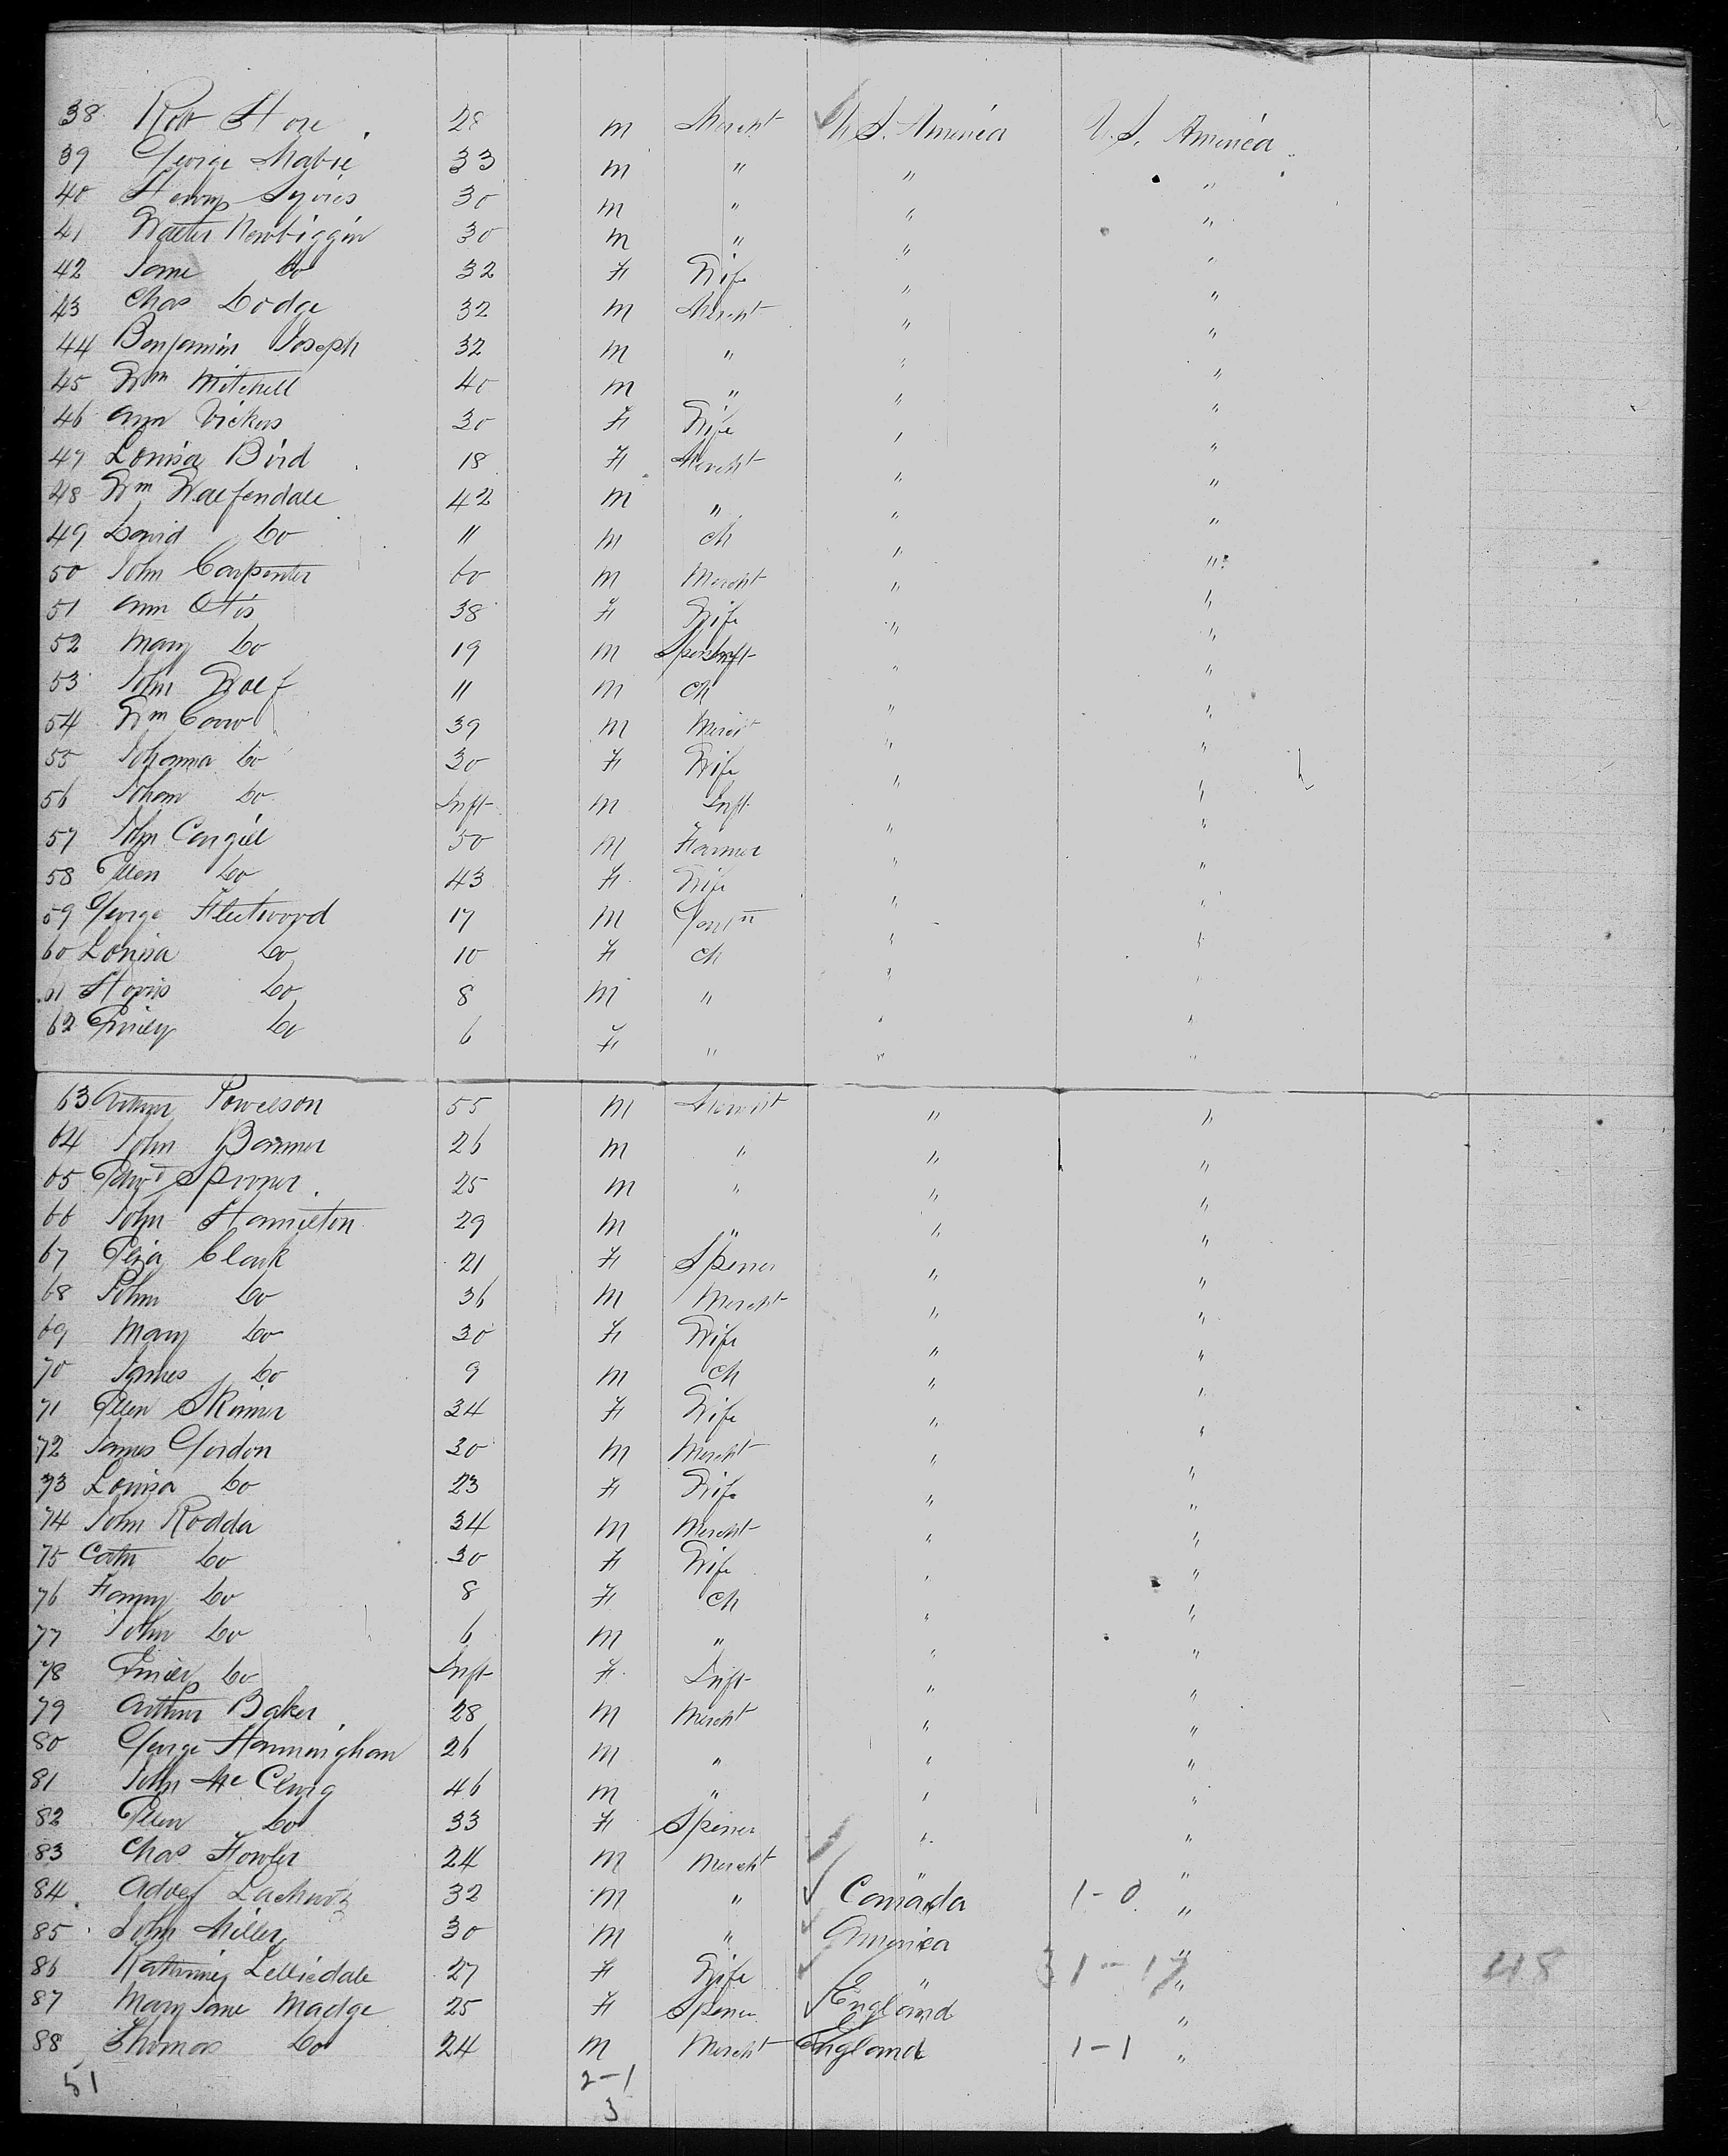 38 Robt Hore 28 m Mercht U.S. America U.S. America
39 George Mabie 33 m " " "
40 Henry Syvies 30 m " " "
41 Walter Newbiggin 30 m " " "
42 Jane Do 32 F Wife " "
43 Chas Dodge 32 m Mercht " "
44 Benjamin Joseph 32 m " " "
45 Wm Mitchell 40 m " " "
46 Ann Vickers 30 F Wife " "
47 Louisa Bird 18 F Mercht " "
48 Wm Walfendale 42 m " " "
49 David Do 11 m ch " "
50 John Carpenter 60 m Mercht " "
51 Ann Otis 38 F Wife " "
52 Mary Do 19 m " "
53 John Walf 11 m ch " "
54 Wm Carr 39 m Mercht " "
55 Johanna Do 30 F Wife " "
56 Johan Do Inft m Inft " "
57 John Cargill 50 m Farmer " "
58 Ellen Do 43 F Wife " "
59 George Fleetwood 17 m " "
60 Louisa Do 10 F ch " "
61 Do 8 m " " "
62 Emily Do 6 F " " "
63 Arthur Powelson 55 m Mercht " "
64 John Bammer 26 m " " "
65 Edwd Spinner 25 m " " "
66 John Hamilton 29 m " " "
67 Eliza Clark 21 F Spinner " "
68 John Do 36 m Mercht " "
69 Mary Do 30 F Wife " "
70 James Do 9 m ch " "
71 Ellen Skinner 34 F Wife " "
72 James Gordon 30 m Mercht " "
73 Louisa Do 23 F Wife " "
74 John Rodda 34 m Mercht " "
75 Cath Do 30 F Wife " "
76 Fanny Do 8 F ch " "
77 John Do 6 m " " "
78 Emily Do Inft F Inft " "
79 Arthur Baker 28 m Mercht " "
80 George Hanningham 26 m " " "
81 John Mc Clurg 46 m " " "
82 Ellen Do 33 F Spiner " "
83 Chas Fowler 24 m Mercht " "
84 Adolf Lachwitz 32 m " Canada 1-0 "
85 John Miller 30 m " America "
86 Katherine Lelliedale 27 F Wife " 31-17 " 418
87 Mary Jane Madge 25 F Spiner England "
88 Thomas Do 24 m Mercht England 1-1 "
51 2-1
3